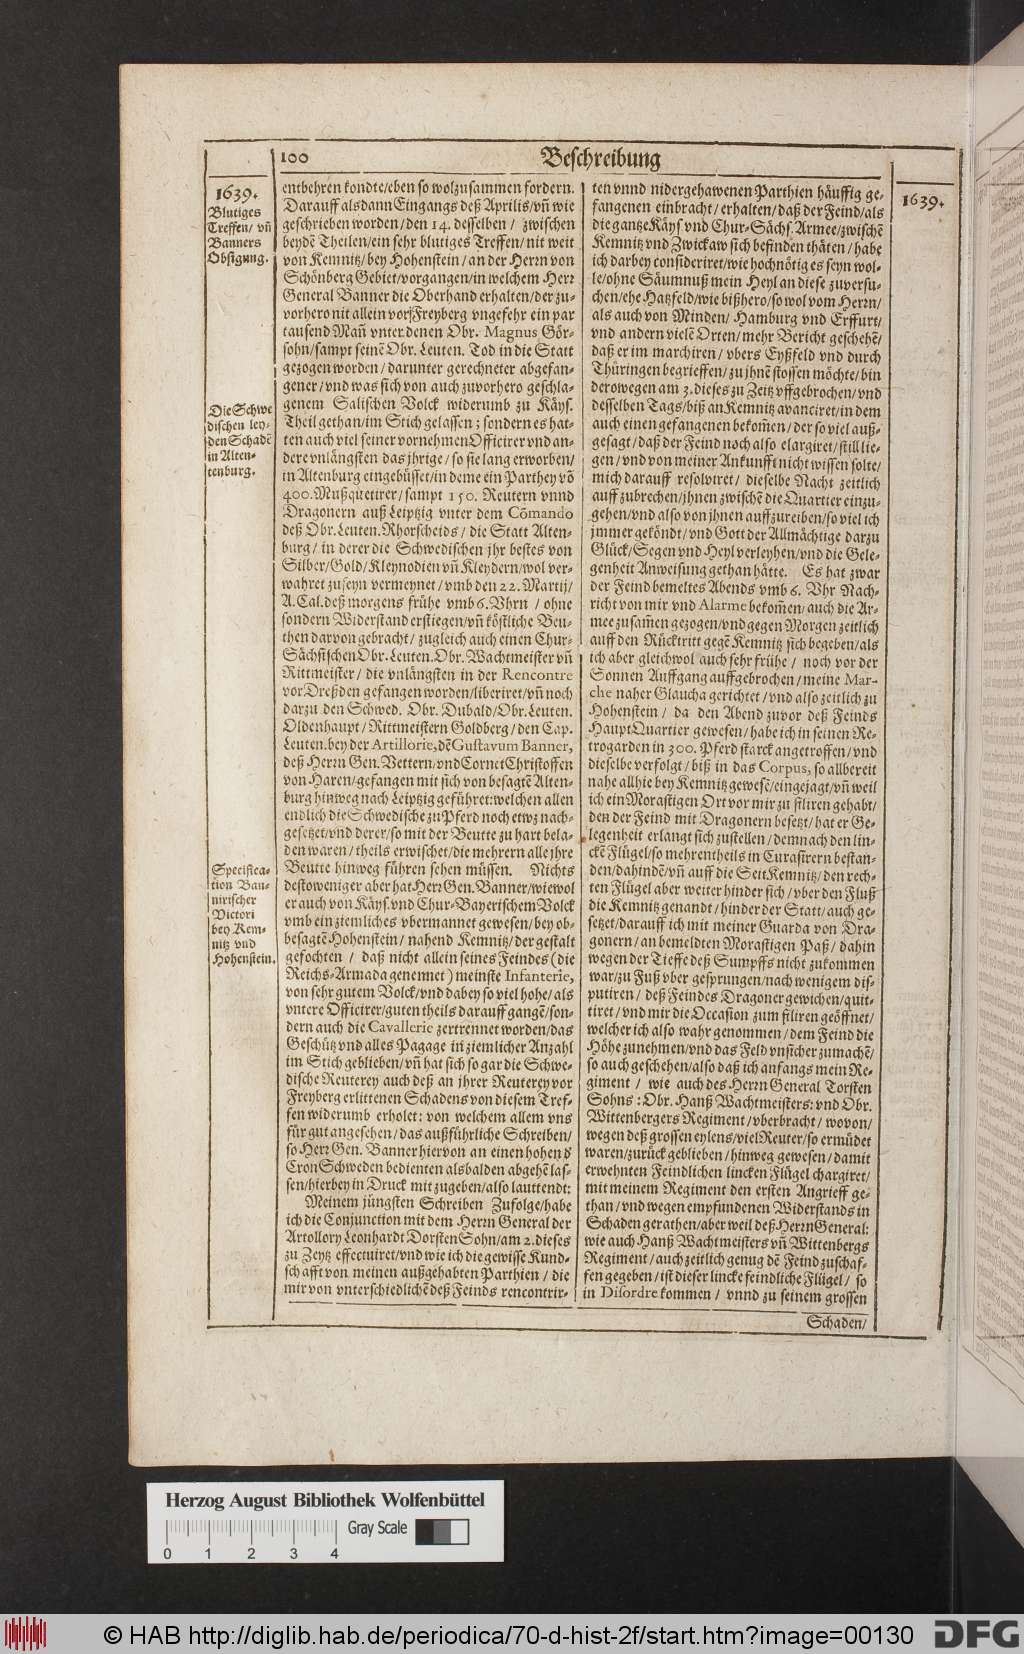 100
Beschreibung
1639.
Blutiges
Treffen/ vñ
Banners
Obsigung.
Die Schwe
dischen ley-
den Schadẽ
in Alten-
tenburg.
Specifica-
tion Ban-
nirischer
Victori
bey Kem-
nitz vnd
Hohenstein.
entbehren kondte/eben so wol zusammen fordern.
Darauff alsdann Eingangs deß Aprilis/vñ wie
geschrieben worden/den 14. desselben / zwischen
beydẽ Theilen/ein sehr blutiges Treffen/nit weit
von Kemnitz/ bey Hohenstein/an der Herrn von
Schönberg Gebiet/vorgangen/in welchem Herr
General Banner die Oberhand erhalten/der zu-
vorhero nit allein vor Freyberg vngefehr ein par
tausend Mañ vnter denen Obr. Magnus Gör-
sohn/sampt seinẽ Obr. Leuten. Tod in die Statt
gezogen worden / darunter gerechneter abgefan-
gener/vnd was sich von auch zuvorhero geschla-
genem Salischen Volck widerumb zu Käys.
Theil gethan/im Stich gelassen; sondern es hat-
ten auch viel seiner vornehmen Officirer vnd an-
dere vnlängsten das jhrige/so sie lang erworben/
in Altenburg eingebüsset/in deme ein Parthey võ
400. Mußquetirer/sampt 150. Reutern vnnd
Dragonern auß Leiptzig vnter dem Cõmando
deß Obr. Leuten. Rhorscheids / die Statt Alten-
burg/in derer die Schwedischen jhr bestes von
Silber/Gold/Kleynodien vñ Kleydern/wol ver-
wahret zu seyn vermeynet/vmb den 22. Martij/
A. Cal. deß morgens frühe vmb 6. Vhrn / ohne
sondern Widerstand erstiegen/vñ köstliche Beu-
then darvon gebracht/zugleich auch einen Chur-
Sächsischen Obr. Leuten. Obr. Wachtmeister vñ
Rittmeister/ die vnlängsten in der Rencontre
vor Dreßden gefangen worden/liberiret/vñ noch
darzu den Schwed. Obr. Dubald/Obr. Leuten.
Oldenhaupt/Rittmeistern Goldberg/den Cap.
Leuten. bey der Artillorie, dẽ Gustavum Banner,
deß Herrn Gen. Vettern/vnd Cornet Christoffen
von Haren/gefangen mit sich von besagtẽ Alten-
burg hinweg nach Leiptzig geführet: welchen allen
endlich die Schwedische zu Pferd noch etwz nach-
gesetzet/vnd derer/so mit der Beutte zu hart bela-
den waren/theils erwischet/die mehrern alle jhre
Beutte hinweg führen sehen müssen. Nichts
destoweniger aber hat Herr Gen. Banner/wiewol
er auch von Käys. vnd Chur-Bayerischem Volck
vmb ein ziemliches vbermannet gewesen/bey ob-
besagtẽ Hohenstein/nahend Kemnitz/der gestalt
gefochten / daß nicht allein seines Feindes (die
Reichs-Armada genennet) meinste Infanterie,
von sehr gutem Volck/vnd dabey so viel hohe/als
vntere Officirer/guten theils darauff gangẽ/son-
dern auch die Cavallerie zertrennet worden/das
Geschütz vnd alles Pagage in ziemlicher Anzahl
im Stich geblieben/vñ hat sich so gar die Schwe-
dische Reuterey auch deß an jhrer Reuterey vor
Freyberg erlittenen Schadens von diesem Tref-
fen widerumb erholet: von welchem allem vns
für gut angesehen/das außführliche Schreiben/
so Herr Gen. Banner hiervon an einen hohen d̕
Cron Schweden bedienten alsbalden abgehẽ las-
sen/hierbey in Druck mit zugeben/also lauttendt:
Meinem jüngsten Schreiben Zufolge/habe
ich die Conjunction mit dem Herrn General der
Artollory Leonhardt Dorsten Sohn/am 2. dieses
zu Zeytz effectuiret/vnd wie ich die gewisse Kund-
schafft von meinen außgehabten Parthien / die
mir von vnterschiedlichẽ deß Feinds rencontrir-
ten vnnd nidergehawenen Parthien häuffig ge-
fangenen einbracht/erhalten/daß der Feind/als
die gantze Käys vnd Chur-Sächs. Armee/zwischẽ
Kemnitz vnd Zwickaw sich befinden thäten/habe
ich darbey consideriret/wie hochnötig es seyn wol-
le/ohne Säumnuß mein Heyl an diese zuversu-
chen/ehe Hatzfeld/wie bißhero/so wol vom Herrn/
als auch von Minden/ Hamburg vnd Erffurt/
vnd andern vielẽ Orten/mehr Bericht geschehẽ/
daß er im marchiren/ vbers Eyßfeld vnd durch
Thüringen begrieffen/zu jhnẽ stossen möchte/bin
derowegen am 3. dieses zu Zeitz vffgebrochen/vnd
desselben Tags/biß an Kemnitz avanciret/in dem
auch einen gefangenen bekom̃en/der so viel auß-
gesagt/daß der Feind noch also elargiret/still lie-
gen/vnd von meiner Ankunfft nicht wissen solte/
mich darauff resolviret/ dieselbe Nacht zeitlich
auff zubrechen/jhnen zwischẽ die Quartier einzu-
gehen/vnd also von jhnen auff zureiben/so viel ich
jmmer gekönd/vnd Gott der Allmächtige darzu
Glück/Segen vnd Heyl verleyhen/vnd die Gele-
genheit Anweisung gethan hätte. Es hat zwar
der Feind bemeltes Abends vmb 6. Vhr Nach-
richt von mir vnd Alarme bekom̃en/auch die Ar-
mee zusam̃en gezogen/vnd gegen Morgen zeitlich
auff den Rücktritt gegẽ Kemnitz sich begeben/als
ich aber gleichwol auch sehr frühe / noch vor der
Sonnen Auffgang auffgebrochen/meine Mar-
che naher Glaucha gerichtet/vnd also zeitlich zu
Hohenstein / da den Abend zuvor deß Feinds
Haupt Quartier gewesen/habe ich in seinen Re-
trogarden in 300. Pferd starck angetroffen/vnd
dieselbe verfolgt/biß in das Corpus, so allbereit
nahe allhie bey Kemnitz gewesẽ/eingejagt/vñ weil
ich ein Morastigen Ort vor mir zu filiren gehabt/
den der Feind mit Dragonern besetzt/hat er Ge-
legenheit erlangt sich zustellen/demnach den lin-
ckẽ Flügel/so mehrentheils in Curasirern bestan-
den/dahindẽ/vñ auff die Seit Kemnitz/den rech-
ten Flügel aber weiter hinder sich/vber den Fluß
die Kemnitz genandt/hinder der Statt/auch ge-
setzet/darauff ich mit meiner Guarda von Dra-
gonern/an bemeldten Morastigen Paß/dahin
wegen der Tieffe deß Sumpffs nicht zukommen
war/zu Fuß vber gesprungen/nach wenigem dis-
putiren / deß Feindes Dragoner gewichen/quit-
tiret/vnd mir die Occasion zum filiren geöffnet/
welcher ich also wahr genommen/dem Feind die
Höhe zunehmen/vnd das Feld vnsicher zumachẽ/
so auch geschehen/also daß ich anfangs mein Re-
giment / wie auch des Herrn General Torsten
Sohns: Obr. Hanß Wachtmeisters: vnd Obr.
Wittenbergers Regiment/vberbracht/wovon/
wegen deß grossen eylens/viel Reuter/so ermüdet
waren/zurück geblieben/hinweg gewesen/damit
erwehnten Feindlichen lincken Flügel chargiret/
mit meinem Regiment den ersten Angrieff ge-
than/vnd wegen empfundenen Widerstands in
Schaden gerathen/aber weil deß Herrn General:
wie auch Hanß Wachtmeisters vñ Wittenbergs
Regiment/auch zeitlich genug dẽ Feind zuschaf-
fen gegeben/ist dieser lincke feindliche Flügel/ so
in Disordre kommen / vnnd zu seinem grossen
Schaden/
1639.
Herzog August Bibliothek Wolfenbüttel
Gray Scale
0 1 2 3 4
© HAB http://diglib.hab.de/periodica/70-d-hist-2f/start.htm?image=00130
DFG